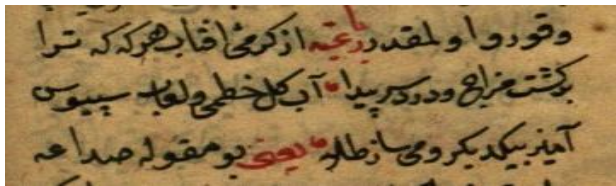 وقوردوا ولمقدر رباعیه از کرمی افتاب هر که که ترا
بر کشت مزاج و درد سر پیدا آب کل خطمی و لعاب سپیوس
آمیز بیکدیکر و می ساز طلا یعنی بو مقوله صداعه